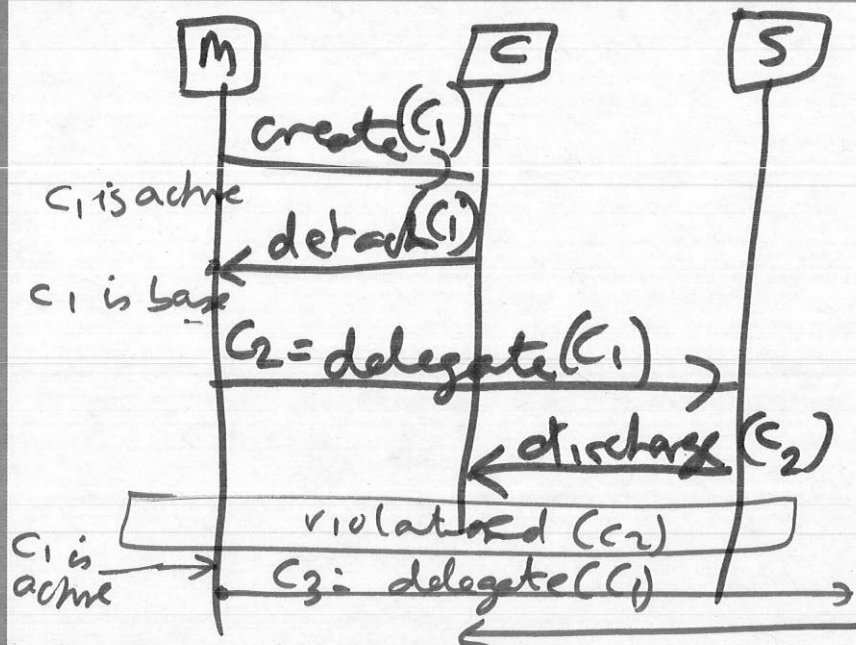 M C S
create(C₁)
C₁ is active
detach(C₁)
C₁ is base
C₂ = delegate(C₁)
discharge (C₂)
violated (C₂)
C₁ is
active
C₃ = delegate(C₁)